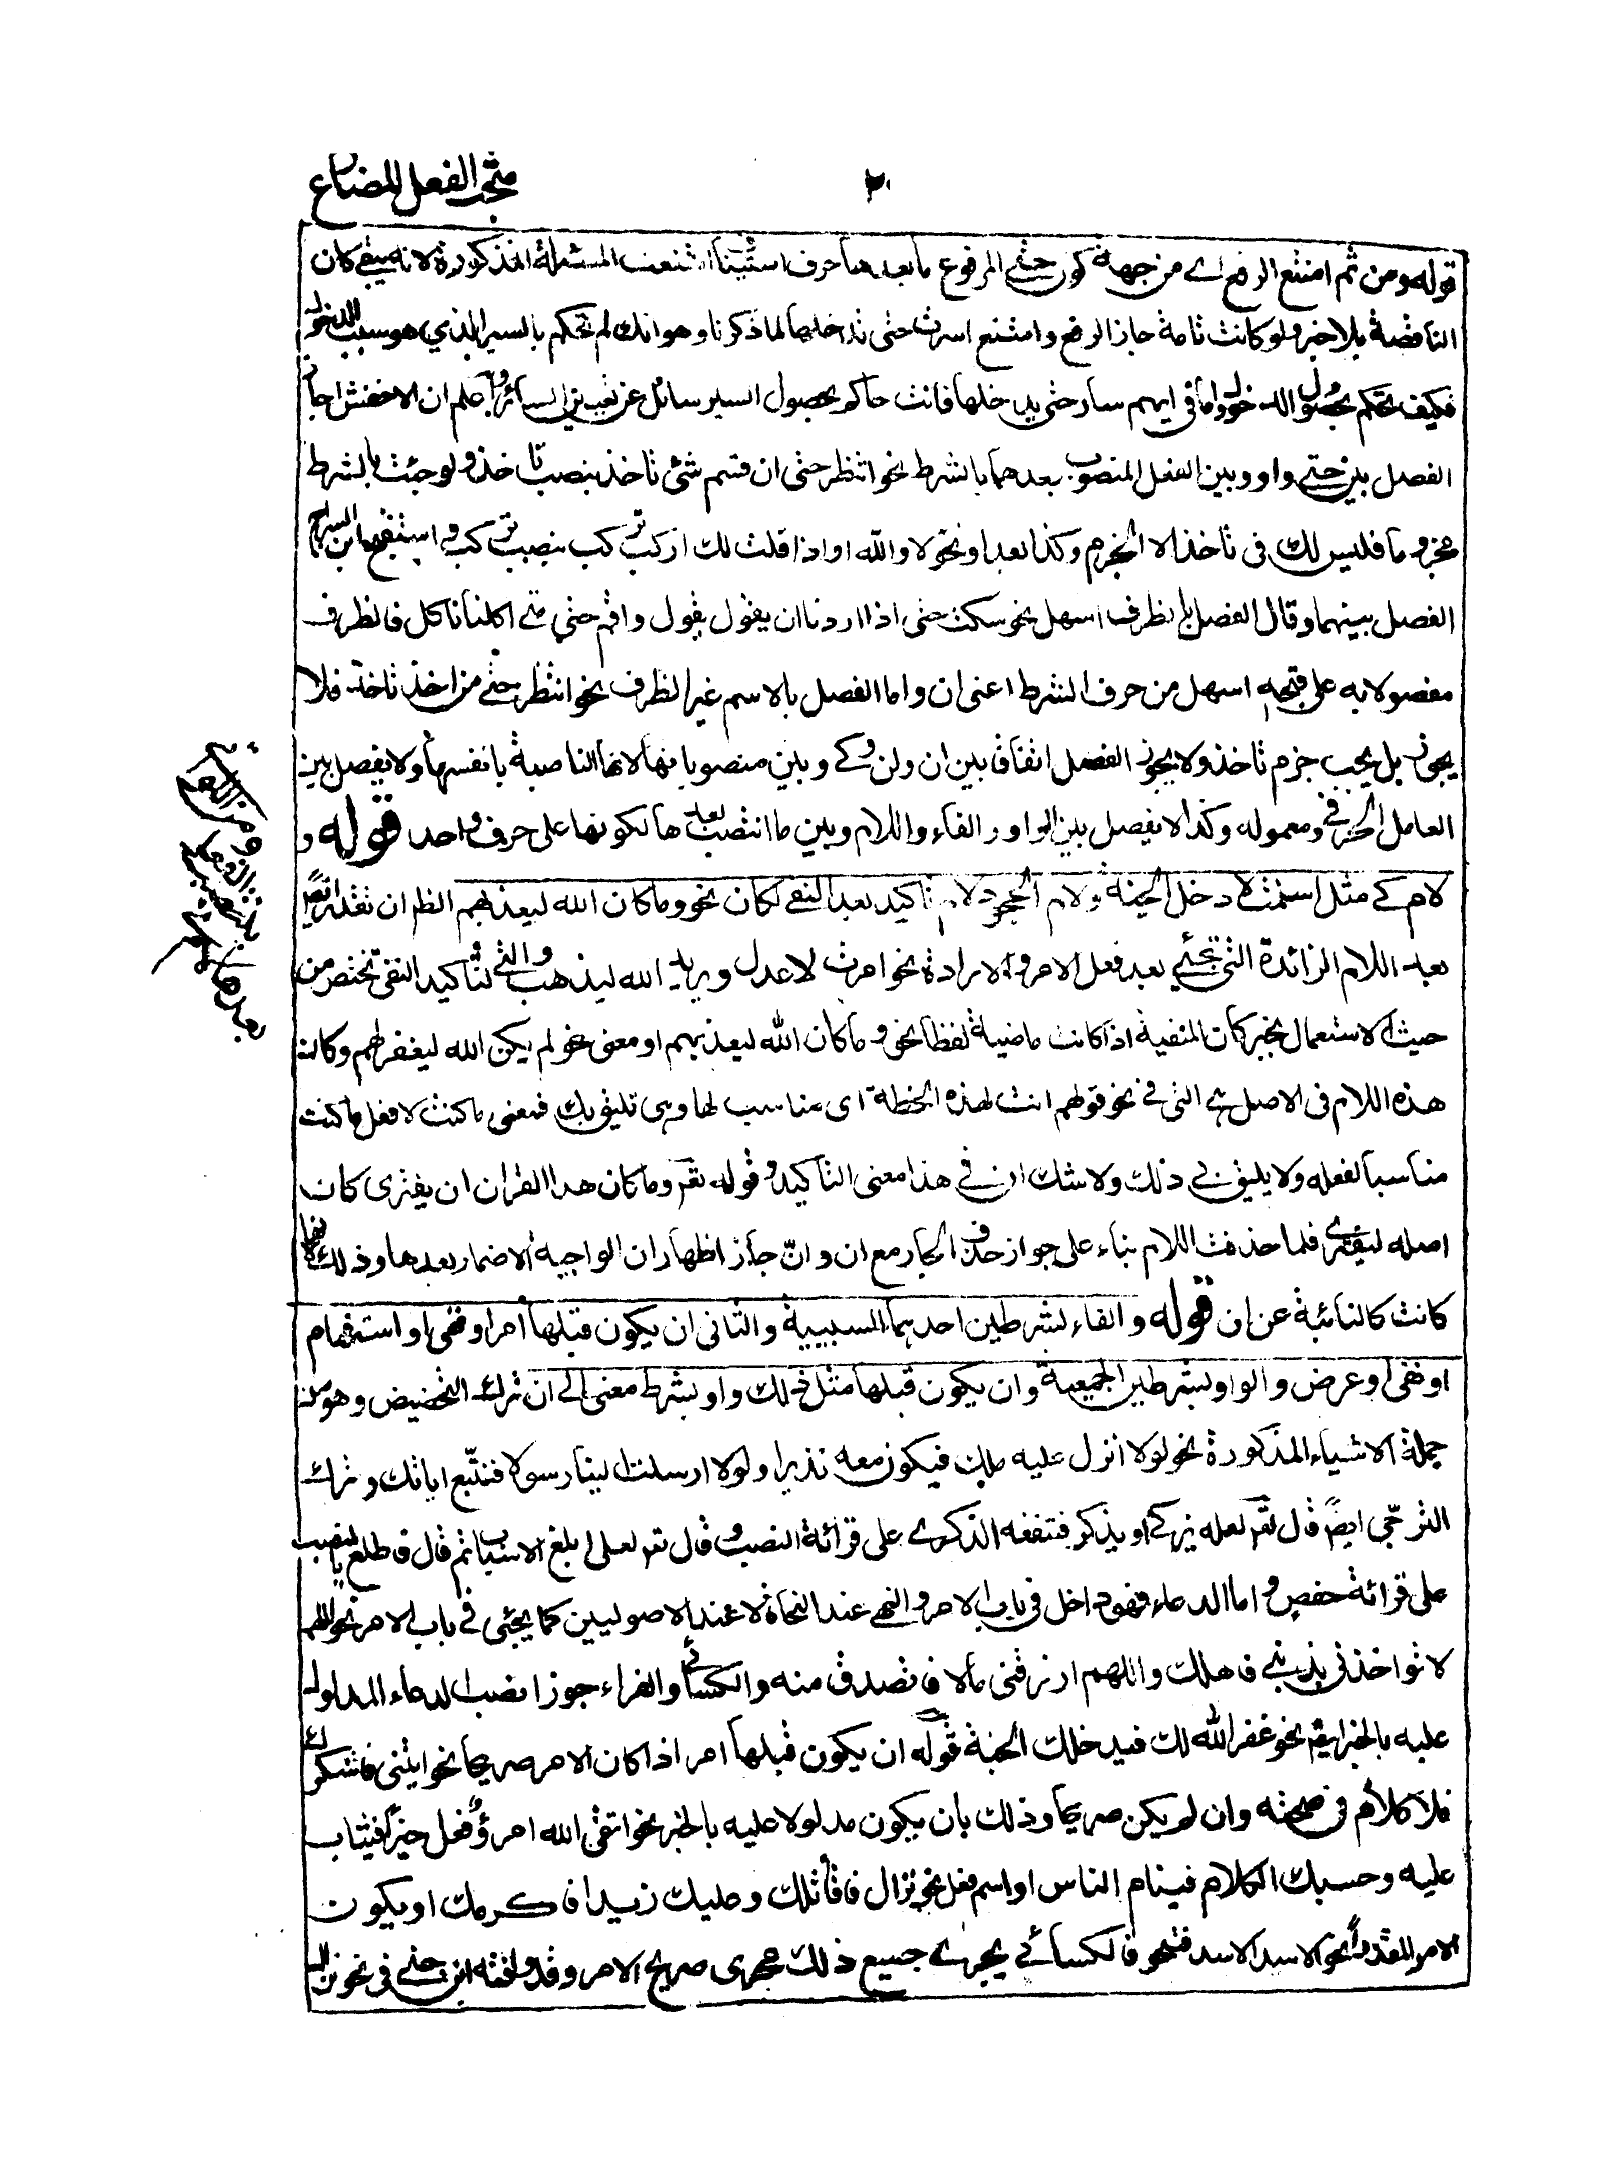 مبحث الفعل المضارع
قوله ومن ثم امتنع الرفع اے من جهة كون حتى المرفوع ما بعدها حرف استيناف امتنعت المسئلة المذكورة لانه يبقى كان
الناقصة بلا خبر ولو كانت تامة جاز الرفع وامتنع اسرت حتى تدخلها لما ذكرنا وهو انك لم تحكم بالسير الذي هو سبب الدخول
فكيف تحكم بحصول الدخول واما فى ايهم سار حتى يدخلها فانت حاكم بحصول السير سائل عن تعيين السائر واعلم ان الاخفش اجاز
الفصل بين حتى واو وبين الفعل المنصوب بعدهما بالشرط نحو انتظر حتى ان قسم شئ تاخذ بنصب تاخذ ولو جئت بالشرط
مجزوما فليس لك فى تاخذ الا الجزم وكذا بعد او نحو لا والله او اذا قلت لك اركب تركب بنصب تركب واستقبح ابن السراج
الفصل بينهما وقال الفصل بالظرف اسهل نحو سكت حتى اذا اردنا ان يقول يقول واقم حتى متى اكلنا ناكل فالظرف
مفصولا به على قبحه اسهل من حرف الشرط اعنى ان واما الفصل بالاسم غير الظرف نحو انتظر حتى من اخذ تاخذ فلا
يجوز بل يجب جزم تاخذ ولا يجوز الفصل اتفاقا بين ان ولن وكے وبين منصوباتها لانها الناصبة بانفسها ولا يفصل بين
العامل الحرفى ومعموله وكذا لا يفصل بين الواو والفاء واللام وبين ما انتصب بعدها لكونها على حرف واحد قوله و
لام كے مثل اسلمت لادخل الجنة ولام الجحود لام تاكيد بعد النفى لكان نحو وما كان الله ليعذبهم الظ ان تقدر ايضا
بعد اللام الزائدة التى تجئ بعد فعل الامر والارادة نحو امرت لاعدل ويريد الله ليذهب والتى لتاكيد النفى تختص من
حيث الاستعمال بخبر كان المنفية اذا كانت ماضية لفظا نحو وما كان الله ليعذبهم او معنى نحو لم يكن الله ليغفر لهم وكانت
هذه اللام فى الاصل هى التى فى نحو قولهم انت لهذه الخطة اى مناسب لها وهى تليق بك فمعنى ما كنت لافعل ما كنت
مناسبا لفعله ولا يليق بى ذلك ولا شك ان فى هذا معنى التاكيد وقوله تعم وما كان هذا القران ان يفترى كان
اصله ليفترے فلما حذفت اللام بناء على جواز حذف الجار مع ان وانّ جاز اظهار ان الواجبة الاضمار بعدها وذلك لانها
كانت كالنائبة عن ان قوله والفاء بشرطين احدهما السببية والثانى ان يكون قبلها امر او نهى او استفهام
او نفى او عرض والواو بشرطين الجمعية وان يكون قبلها مثل ذلك واو بشرط معنى الى ان ترك التحضيض وهو من
جملة الاشياء المذكورة نحو لولا انزل عليه ملك فيكون معه نذيرا ولولا ارسلت الينا رسولا فنتبع اياتك وترك
الترجّى ايضا قال تعم لعله يزكى او يذكر فتنفعه الذكرے على قرائة النصب وقال تعم لعلى ابلغ الاسباب ثم قال فاطلع بالنصب
على قرائة حفص واما الدعاء فهو داخل فى باب الامر والنهى عند النحاة لا عند الاصوليين كما يجئى فى باب الامر نحو اللهم
لا تواخذنى بذنبى فاهلك واللهم ارزقنى مالا فاتصدق منه والكسائى والفراء جوزا نصب الدعاء المدلول
عليه بالخبر ايضا نحو غفر الله لك فيدخلك الجنة قوله ان يكون قبلها امر اذا كان الامر صريحا نحو ايتنى فاشكرك
فلا كلام فى صحته وان لم يكن صريحا وذلك بان يكون مدلولا عليه بالخبر نحو اتقى الله امرؤ فعل خيرا فيثاب
عليه وحسبك الكلام فينام الناس او اسم فعل نحو نزال فاقاتلك وعليك زيدا فاكرمك او يكون
الامر المقدر نحو الاسد الاسد فتنجو فالكسائى يجرى جميع ذلك مجرى صريح الامر وقد وافقه ابن جنى فى نحو نزال
ومن الفعل
بنصب
بعدها